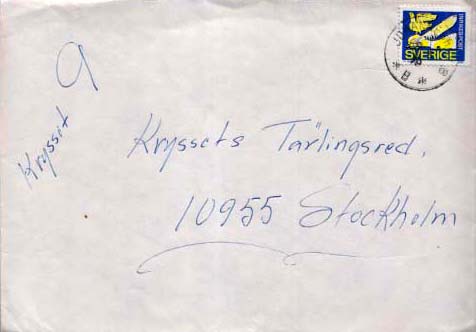 SVERIGE
9
Krysset
Kryssets Tärlingsred.
10955 Stockholm